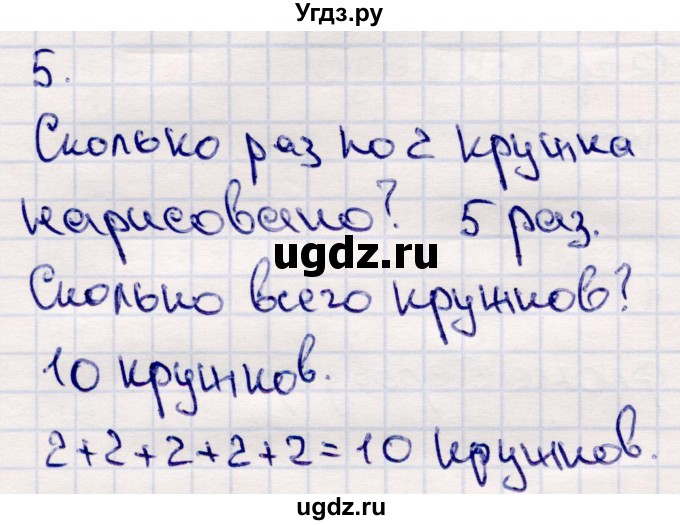 Угдз.ру
5.
Сколько раз по 2 кружка
нарисовано? 5 раз.
ugdz.ru
Сколько всего кружков?
10 кружков.
2+2+2+2+2=10 кружков.
ugdz.ru